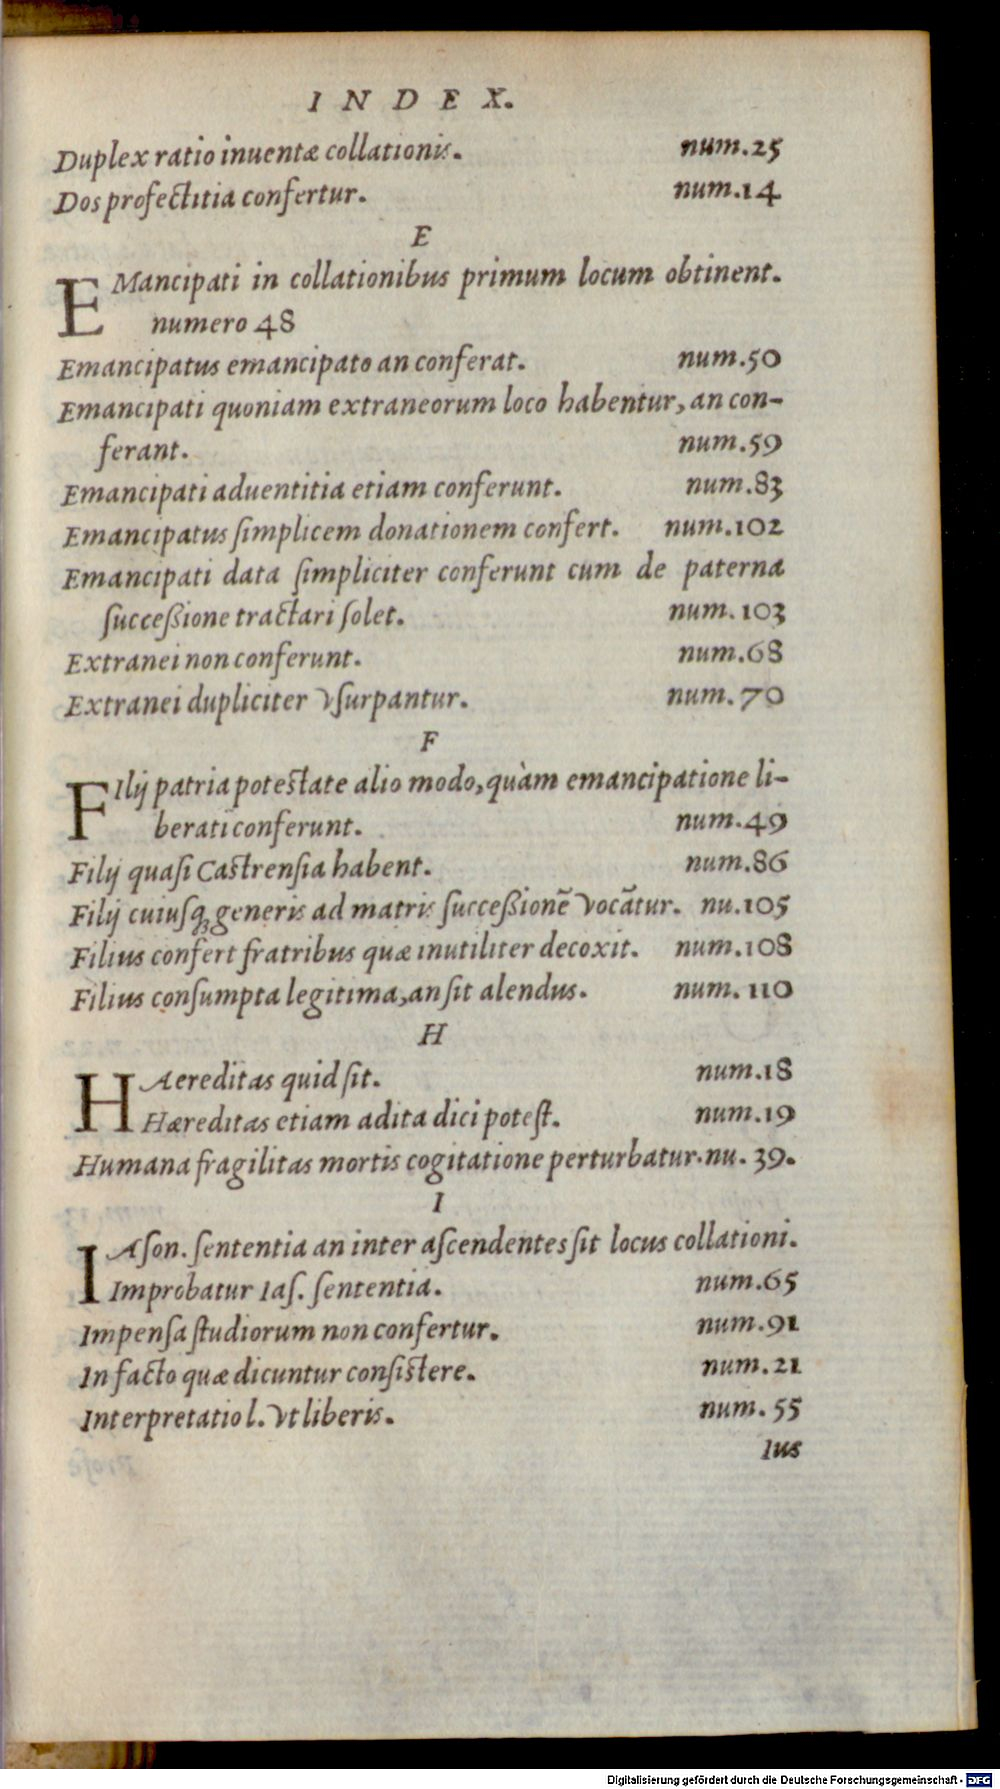 INDEX.
Duplex ratio inuentæ collationis. num.25
Dos profectitia confertur. num.14
E
EMancipati in collationibus primum locum obtinent.
numero 48
Emancipatus emancipato an conferat. num.50
Emancipati quoniam extraneorum loco habentur, an con-
ferant. num.59
Emancipati aduentitia etiam conferunt. num.83
Emancipatus ſimplicem donationem confert. num.102
Emancipati data ſimpliciter conferunt cum de paterna
ſucceßione tractari ſolet. num.103
Extranei non conferunt. num.68
Extranei dupliciter vſurpantur. num.70
F
FIlij patria poteſtate alio modo, quàm emancipatione li-
berati conferunt. num.49
Filij quaſi Caſtrenſia habent. num.86
Filij cuiuſq; generis ad matris ſucceßionē vocātur. nu.105
Filius confert fratribus quæ inutiliter decoxit. num.108
Filius conſumpta legitima, an ſit alendus. num. 110
H
HAereditas quid ſit. num.18
Hæreditas etiam adita dici poteſt. num.19
Humana fragilitas mortis cogitatione perturbatur. nu. 39.
I
IAſon. ſententia an inter aſcendentes ſit locus collationi.
Improbatur Iaſ. ſententia. num.65
Impenſa ſtudiorum non confertur. num.91
In facto quæ dicuntur conſiſtere. num.21
Interpretatio l. vt liberis. num. 55
Ius
Digitalisierung gefördert durch die Deutsche Forschungsgemeinschaft - DFG